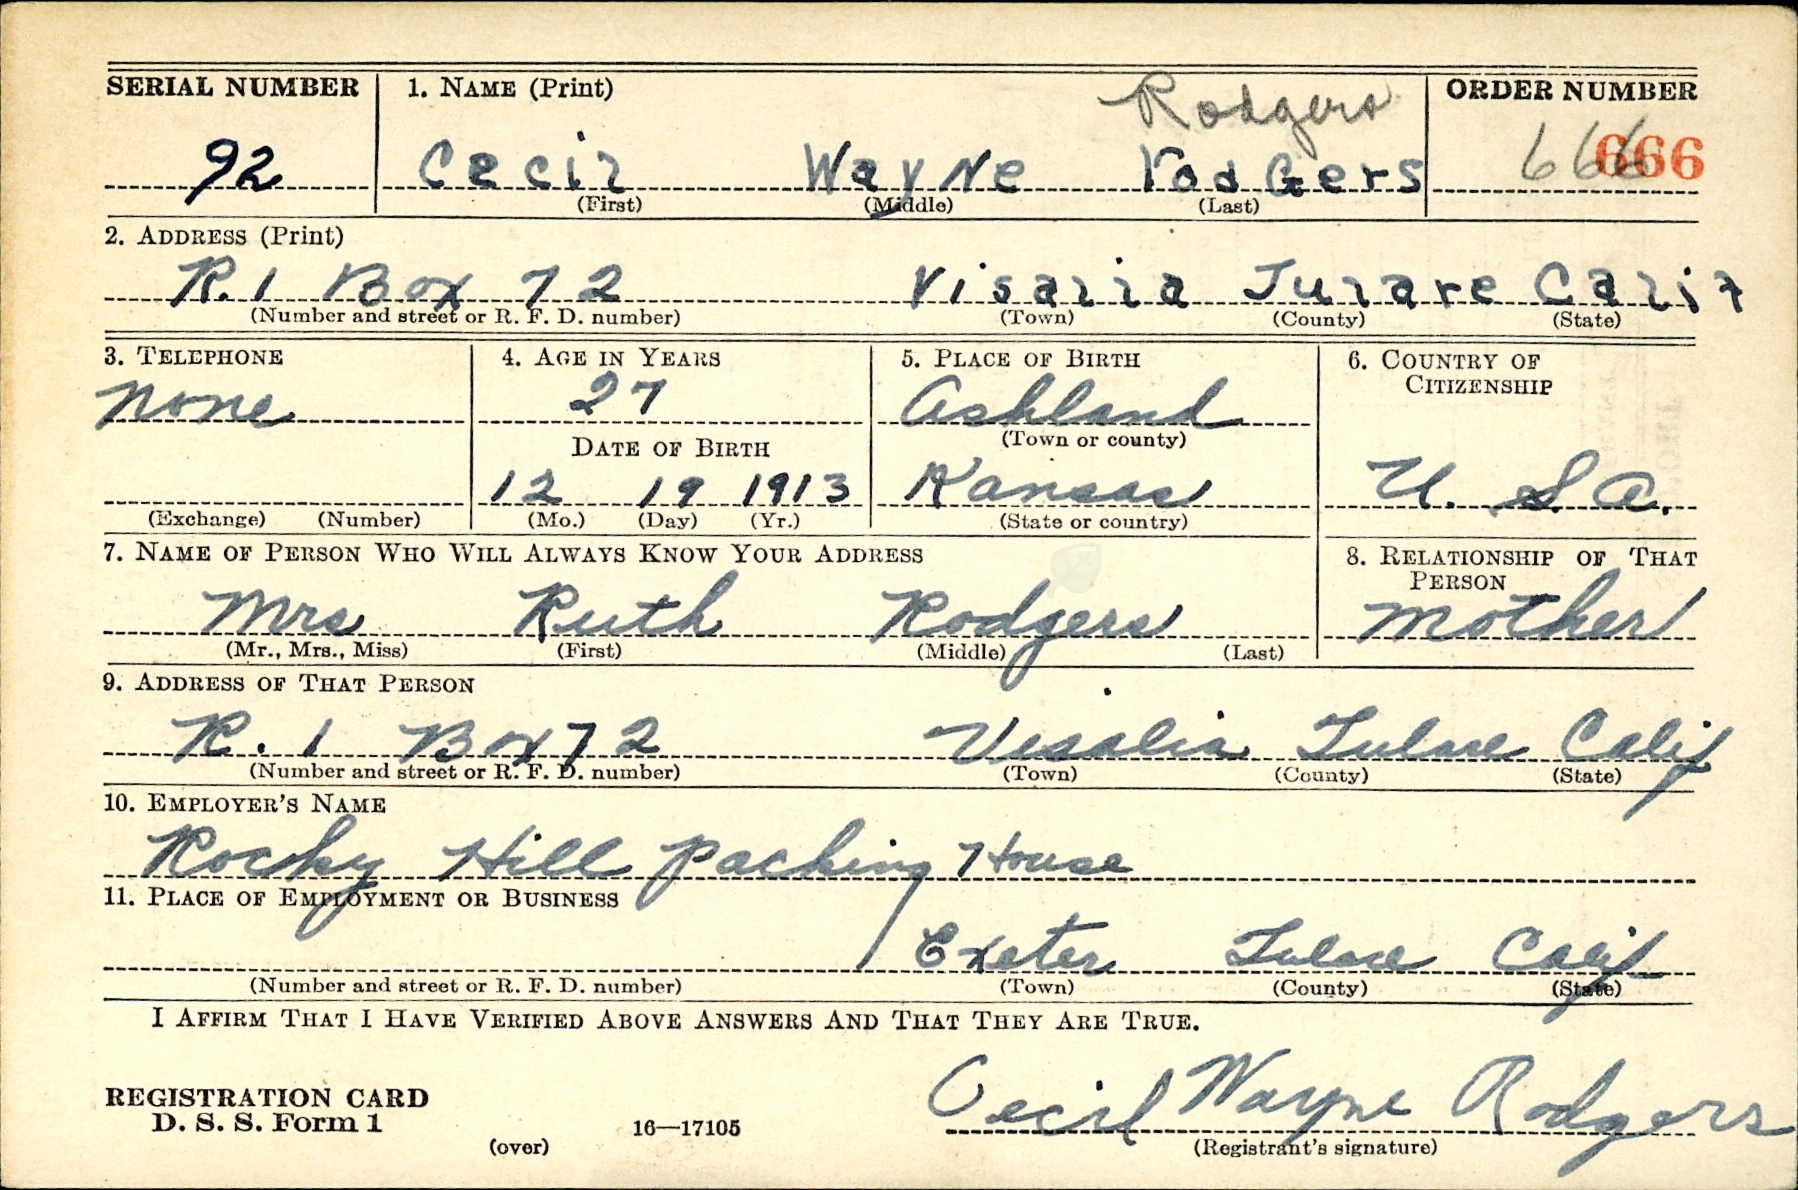 SERIAL NUMBER 1. NAME (Print) Rodgers ORDER NUMBER
92 Cecil Wayne Rodgers 666 666
(First) (Middle) (Last)
2. ADDRESS (Print)
R. 1 Box 72 Visalia Tulare Calif
(Number and street or R. F. D. number) (Town) (County) (State)
3. TELEPHONE 4. AGE IN YEARS 5. PLACE OF BIRTH 6. COUNTRY OF
CITIZENSHIP
None 27 Ashland
(Town or county)
DATE OF BIRTH
12 19 1913 Kansas U. S. A.
(Exchange) (Number) (Mo.) (Day) (Yr.) (State or country)
7. NAME OF PERSON WHO WILL ALWAYS KNOW YOUR ADDRESS 8. RELATIONSHIP OF THAT
PERSON
Mrs Ruth Rodgers Mother
(Mr., Mrs., Miss) (First) (Middle) (Last)
9. ADDRESS OF THAT PERSON
R. 1 Box 72 Visalia Tulare Calif
(Number and street or R. F. D. number) (Town) (County) (State)
10. EMPLOYER'S NAME
Rocky Hill Packing House
11. PLACE OF EMPLOYMENT OR BUSINESS
Exeter Tulare Calif
(Number and street or R. F. D. number) (Town) (County) (State)
I AFFIRM THAT I HAVE VERIFIED ABOVE ANSWERS AND THAT THEY ARE TRUE.
REGISTRATION CARD
D. S. S. Form 1 16—17105 Cecil Wayne Rodgers
(over) (Registrant's signature)